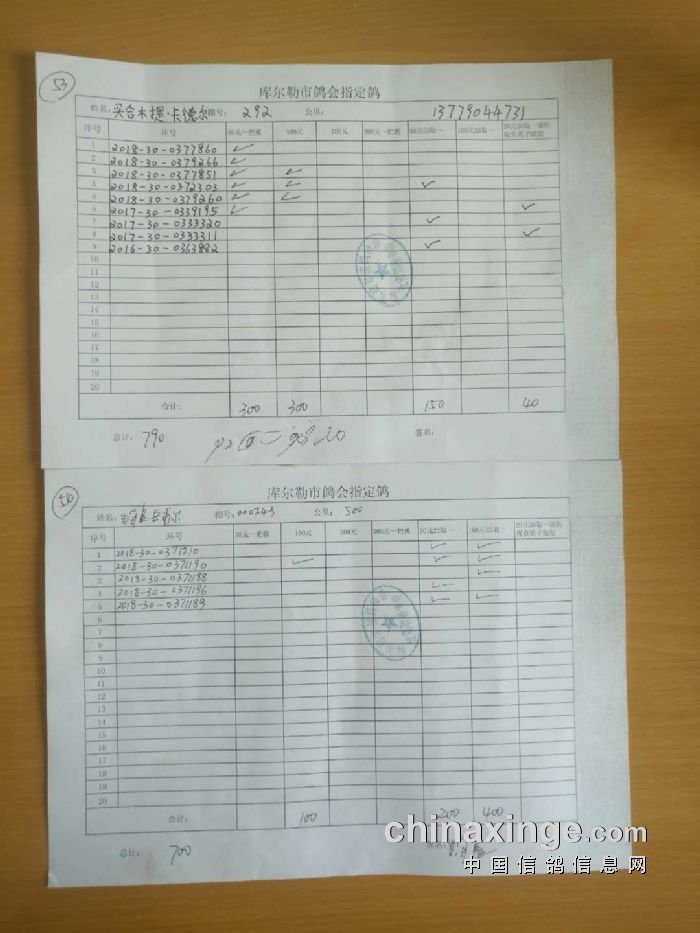 53
库尔勒市鸽会指定鸽
姓名: 买合木提·卡德尔 棚号: 292 公里: 13779044731
序号 环号 50元一把抓 100元 200元 300元一把抓 50元22取一 100元22取一
1 2018-30-0377860 ✓
2 2018-30-0379266 ✓
3 2018-30-0377851 ✓ ✓
4 2018-30-0372303 ✓ ✓ ✓
5 2018-30-0379260 ✓ ✓
6 2017-30-0339195 ✓ ✓
7 2017-30-0333320 ✓
8 2017-30-0333311 ✓
9 2016-30-0363882 ✓
10
11
12
13
14
15
16
17
18
19
20
合计: 300 300 150 40
总计: 790 签名:
50
库尔勒市鸽会指定鸽
姓名: 棚号: 000243 公里: 500
序号 环号 50元一把抓 100元 200元 300元一把抓 50元22取一 100元22取一
1 2018-30-0377210 ✓ ✓
2 2018-30-0371190 ✓ ✓ ✓
3 2018-30-0371188 ✓
4 2018-30-0371196 ✓ ✓
5 2018-30-0371189 ✓ ✓
6
7
8
9
10
11
12
13
14
15
16
17
18
19
20
合计: 100 200 400
总计: 700
chinaxinge.com
中国信鸽信息网